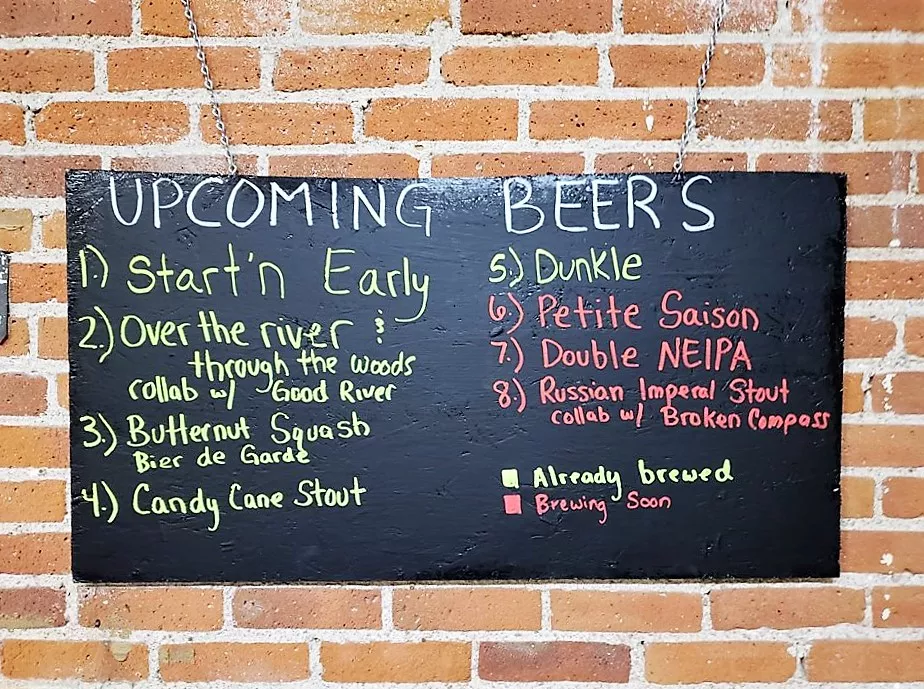 UPCOMING BEERS
1.) Start'n Early
2.) Over the river &
through the woods
collab w/ Good River
3.) Butternut Squash
Bier de Garde
4.) Candy Cane Stout
5.) Dunkle
6.) Petite Saison
7.) Double NEIPA
8.) Russian Imperal Stout
collab w/ Broken Compass
Already brewed
Brewing Soon